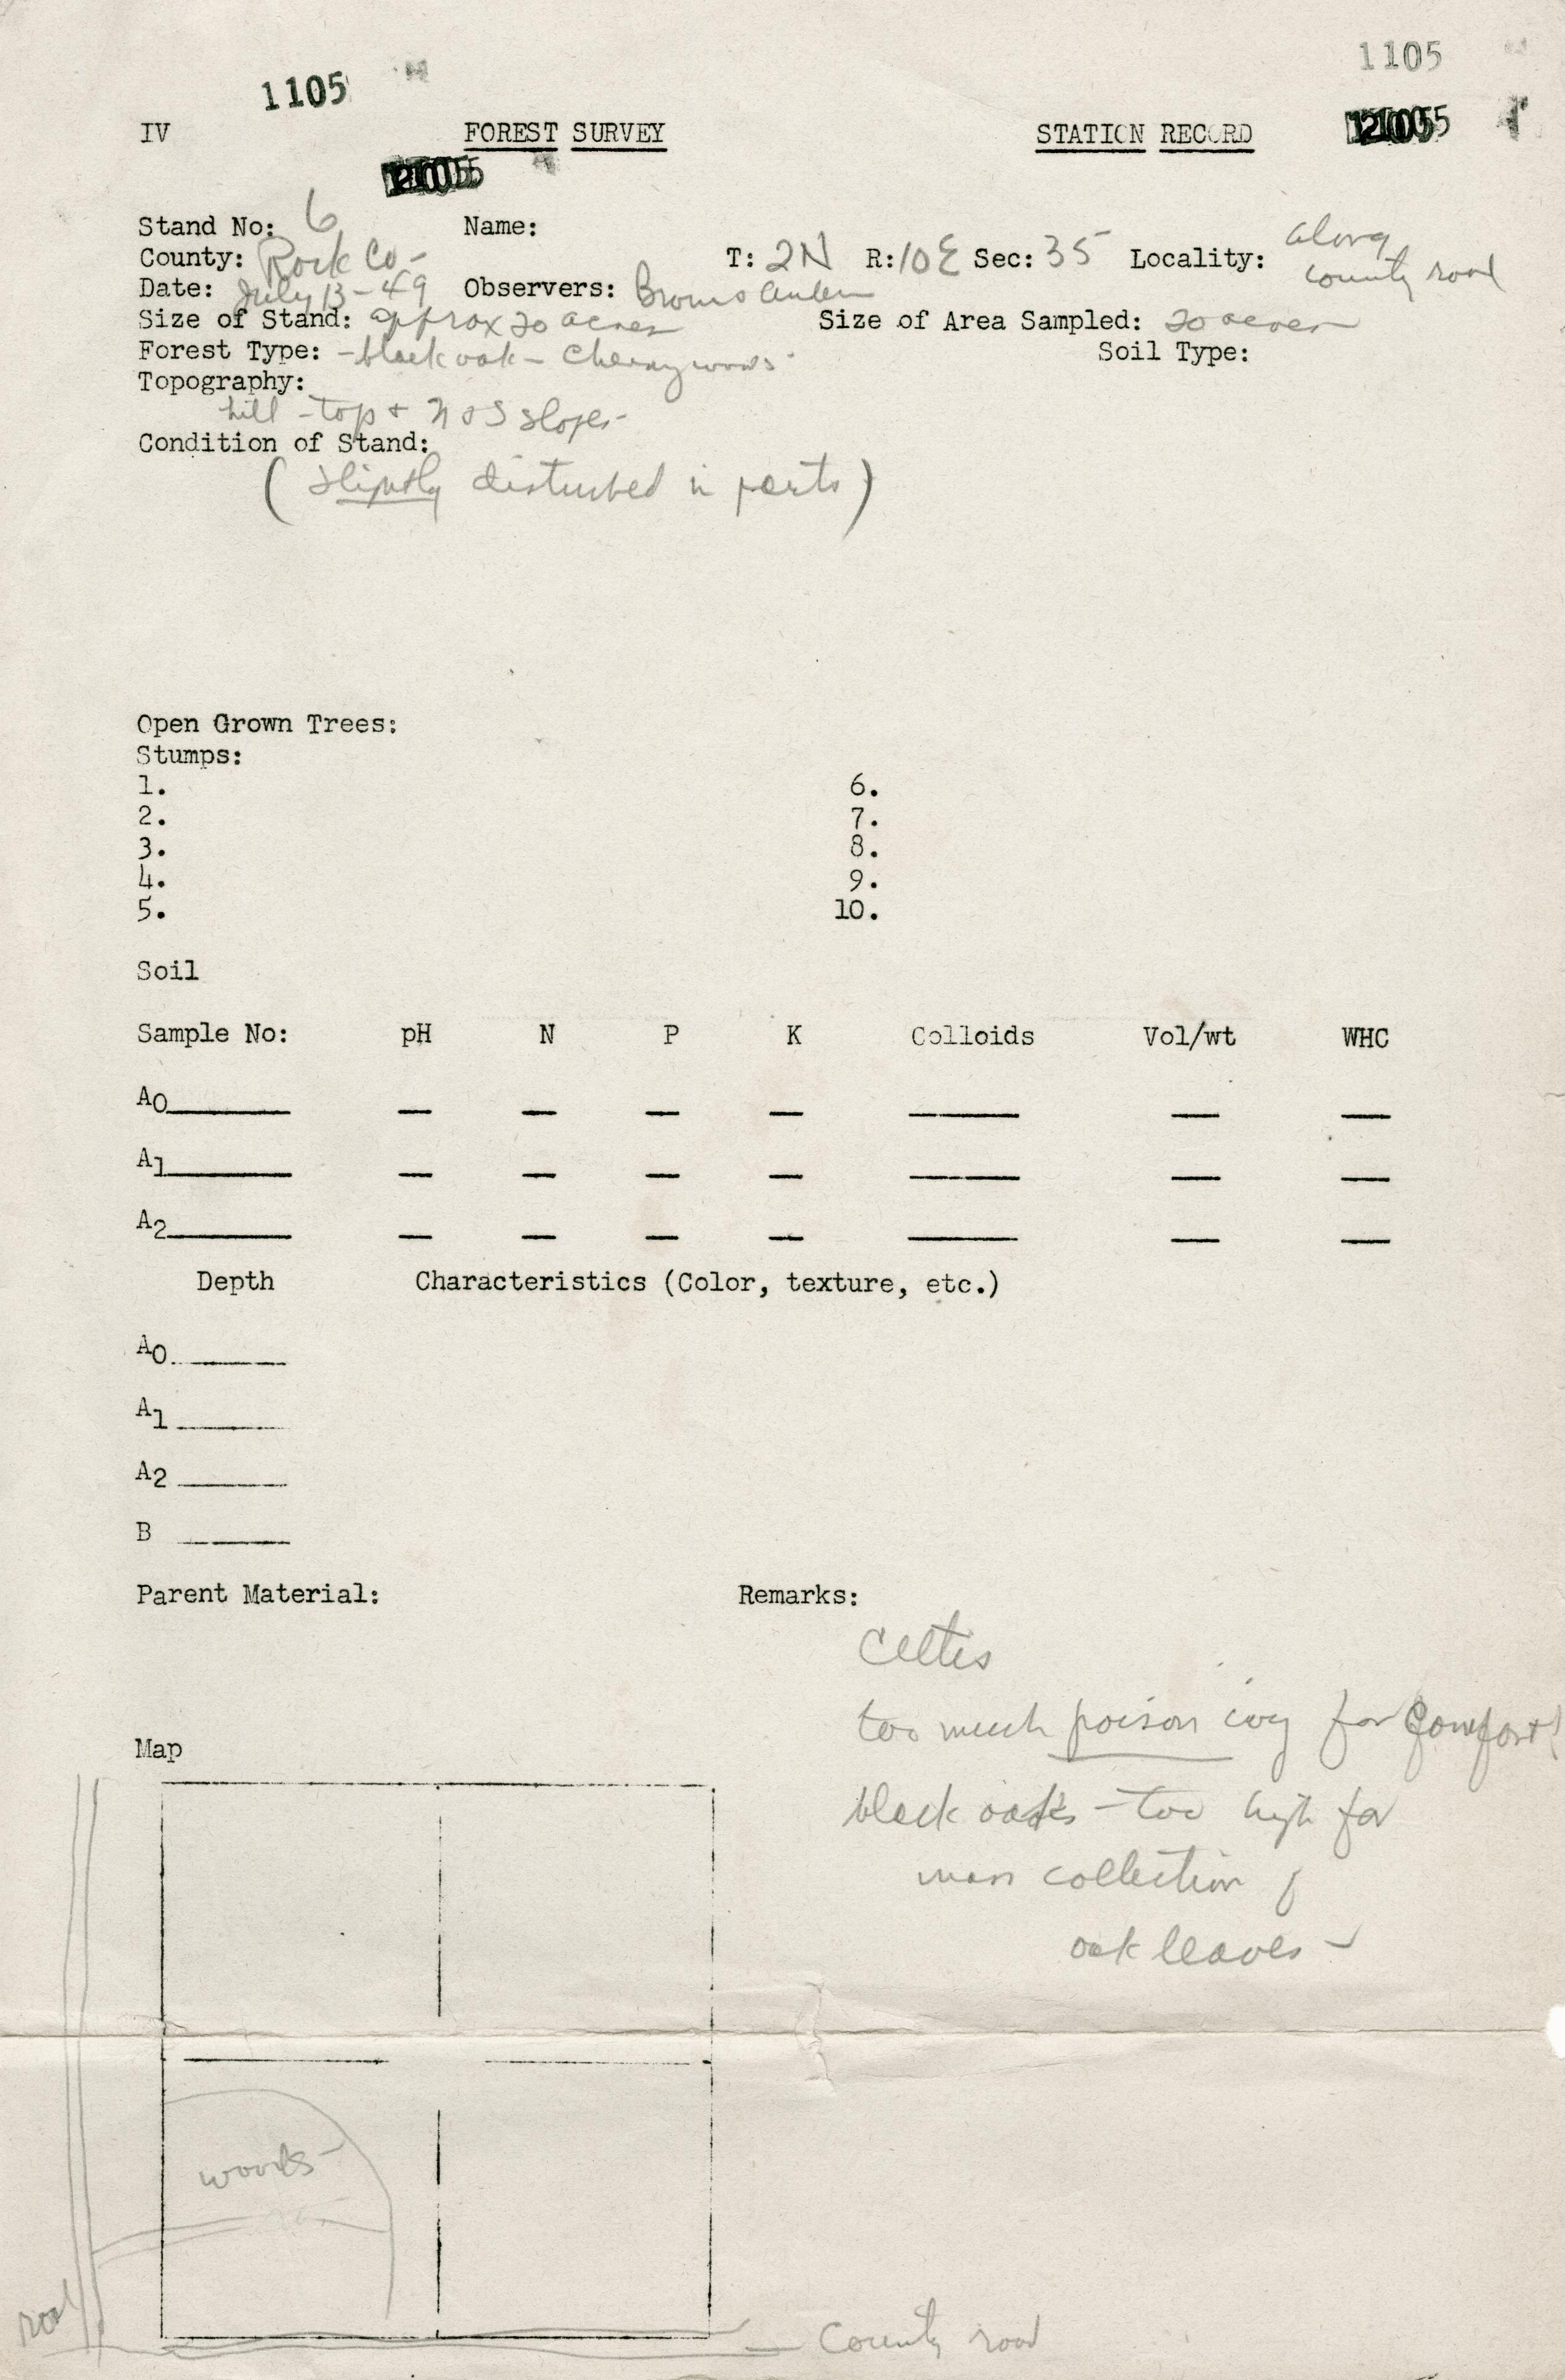 1105
1105
IV FOREST SURVEY STATION RECORD
Stand No: 6 Name:
County: Rock Co- T: 2N R: 10E Sec: 35 Locality: along county road
Date: July 13-49 Observers:
Size of Stand: approx 20 acres Size of Area Sampled: 20 acres
Forest Type: - black oak - Cherry woods Soil Type:
Topography:
hill-top + N + S slopes-
Condition of Stand:
(slightly disturbed in parts)
Open Grown Trees:
Stumps:
1. 6.
2. 7.
3. 8.
4. 9.
5. 10.
Soil
Sample No: pH N P K Colloids Vol/wt WHC
A0
A1
A2
Depth Characteristics (Color, texture, etc.)
A0
A1
A2
B
Parent Material: Remarks:
Celtis
too much poison ivy for comfort!
black oaks - too high for
mass collection of
oak leaves -
Map
woods-
road
County road